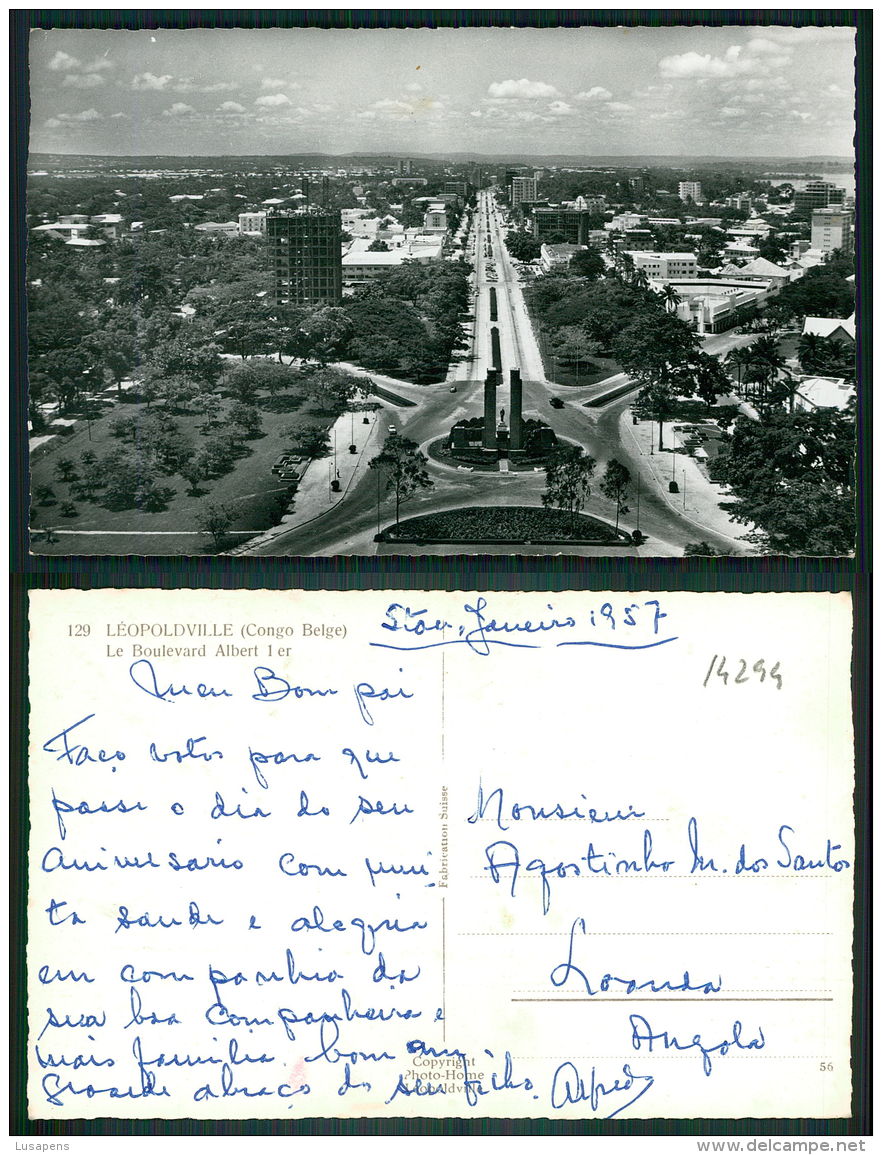 129 LÉOPOLDVILLE (Congo Belge)
Le Boulevard Albert 1er
Janeiro 1957
14294
Meu Bom pai
Faço votos para que
passe o dia do seu
aniversario com mui
ta saude e alegria
em companhia da
sua boa companheira e
mais familia. bom um
grande abraço do seu filho. Alfredo
Fabrication Suisse
Monsieur
Agostinho M. dos Santos
Loanda
Angola
Copyright
Photo-Home
Léopoldville
56
Lusapens
www.delcampe.net